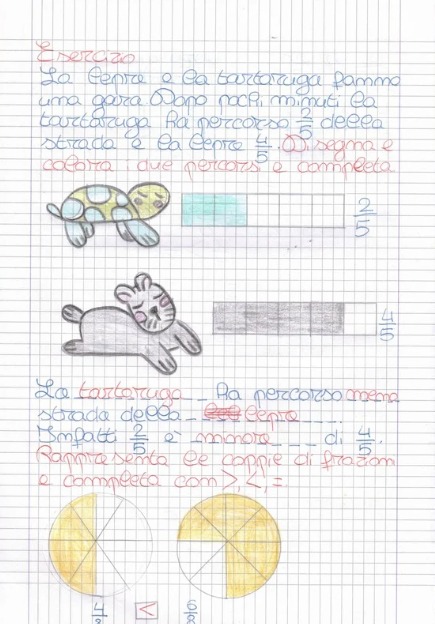 Esercizio
La lepre e la tartaruga fanno
una gara Dopo pochi minuti la
tartaruga ha percorso 2/5 della
strada e la lepre 4/5. Disegna e
colora i due percorsi e completa
2/5
4/5
La tartaruga ha percorso meno
strada della lepre
Infatti 2/5 è minore di 4/5.
Rappresenta le coppie di frazioni
e completa con >, <, =
4/8 < 6/8